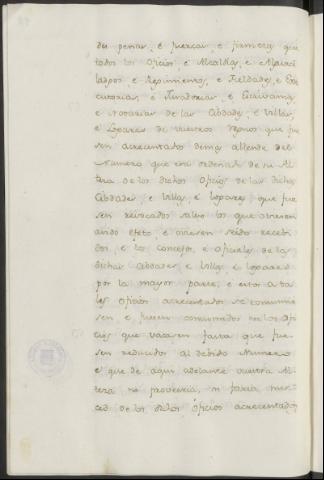 de penar, é mercar, e firmeza que
todos los oficios, e Alcaldias, e Alguacil
ladgos, e Regimientos, e Fieldades, e Exe
cutorias, e Juradorias, e Escrivanias,
e Notarias de las Cibdades, e Villas,
e Logares de vuestros Regnos que fue
sen acrecentados demas allende del
Numero que era ordenado de su Al
teza de los dichos oficios de las dichas
Cibdades, e Villas, e logares que fue
sen revocados salvo los que oviesen
avido efeto e oviesen seido recebi
dos, e los concejos, e oficiales de las
dichas Cibdades e Villas, e logares
por la mayor parte, e estos a ta
les oficios acrecentados se consumie
sen, e fuesen consumidos en los ofi
cios que vacasen fasta que fue
sen reducidos al debido Numero
e que de aqui adelante vuestra Al
teza no proveeria, ni faria mer
ced de los dichos oficios acrecentados